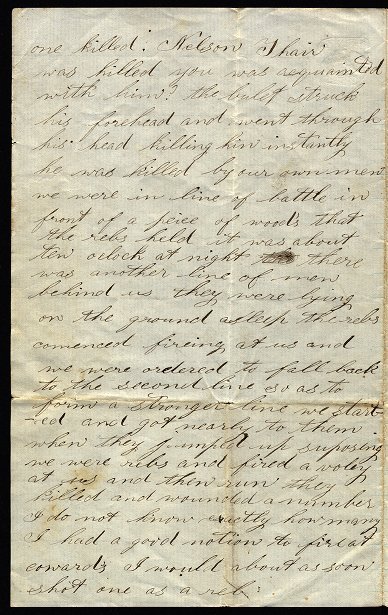 one killed: Nelson Thair
was killed you was aequainted
with him? the bulet struck
his forehead and went through
his head killing him instantly
he was killed by our own men
we were in line of battle in
front of a peice of woods that
the rebs held it was about
ten oclock at night there
was another line of men
behind us they were lying
on the ground asleep the rebs
comenced fireing at us and
we were ordered to fall back
to the second line so as to
form a stronger line we start
-ed and got nearly to them
when they jumped up suposing
we were rebs and fired a voley
at us and then run they
killed and wounded a number
I do not know exactly how many
I had a good notion to fire at
cowards I would about as soon
shot one as a reb: